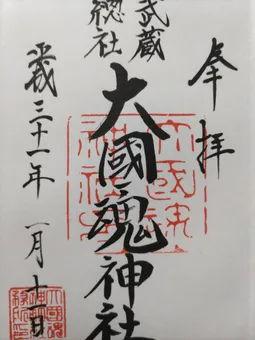 奉拝
武蔵
總社
大國魂神社
平成三十一年 一月十一日